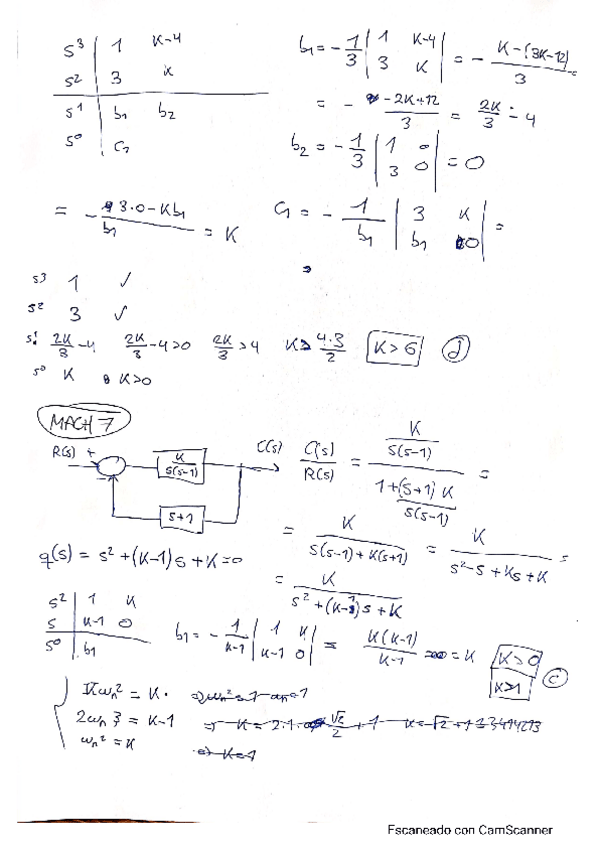 s³ | 1 K-4
s² | 3 K
s¹ | b₁ b₂
s⁰ | C₁
b₁ = - 1/3 | 1 K-4 ; 3 K | = - (K-(3K-12))/3 =
= - (-2K+12)/3 = 2K/3 - 4
b₂ = - 1/3 | 1 0 ; 3 0 | = 0
C₁ = - 1/b₁ | 3 K ; b₁ 0 | =
= - (3·0-Kb₁)/b₁ = K
s³ 1 ✓
s² 3 ✓
s¹ 2K/3-4 2K/3-4>0 2K/3>4 K> 4·3/2 K>6 d
s⁰ K K>0
MACH 7
R(s) + - K/(s(s-1)) C(s)
s+1
C(s)/R(s) = (K/(s(s-1)))/(1+(s+1)K/(s(s-1))) =
= K/(s(s-1)+K(s+1)) = K/(s²-s+Ks+K) =
= K/(s²+(K-1)s+K)
q(s) = s²+(K-1)s+K=0
s² | 1 K
s | K-1 0
s⁰ | b₁
b₁ = - 1/(K-1) | 1 K ; K-1 0 | = K(K-1)/(K-1) = K
K>0
K>1 c
Kωn² = K.
2ωn ξ = K-1 ⇒ K = 2·1· √2/2 + 1 K=√2+1
ωn² = K ⇒ K=1
Escaneado con CamScanner